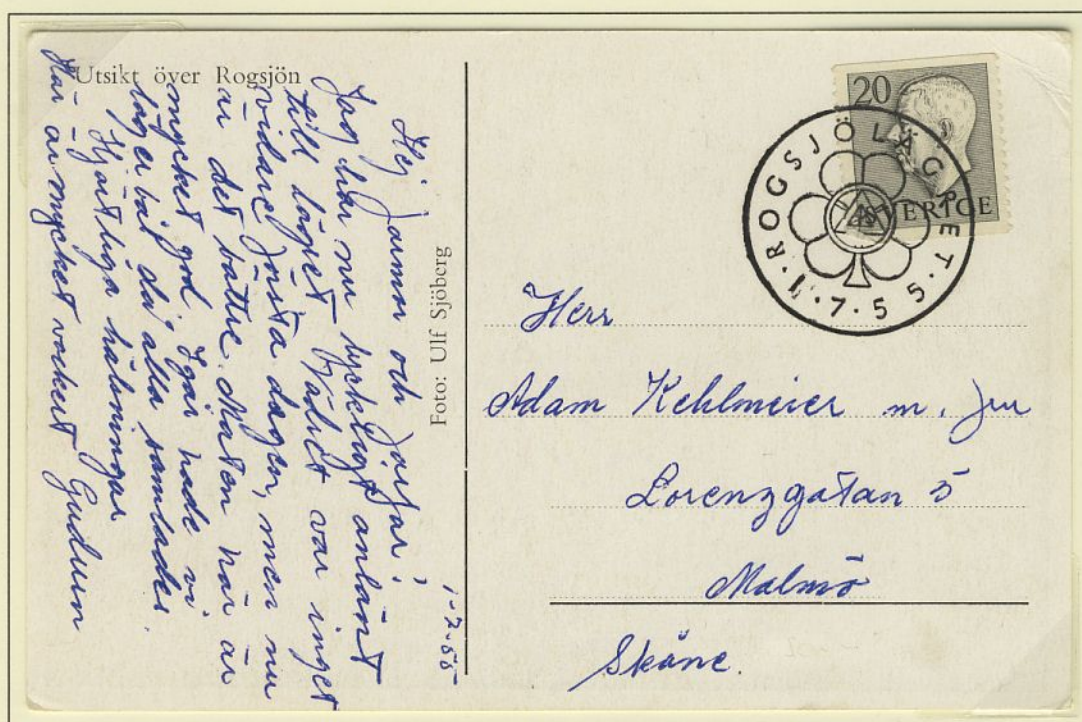 Utsikt över Rogsjön
1-7-55
Hej farmor och farfar!
Jag har nu lyckligt anlänt
till lägret. Vädret var inget
vidare första dagen, men nu
är det bättre. Maten här är
mycket god. Igår hade vi
lägerbål då alla samlades.
Hjärtliga hälsningar
Gudrun
Här är mycket vackert
Foto: Ulf Sjöberg
20
SVERIGE
ROGSJÖLÄGRET · 1 · 7 · 5 5 ·
Herr
Adam Kehlmeier m. fru
Lorenzgatan 5
Malmö
Skåne.